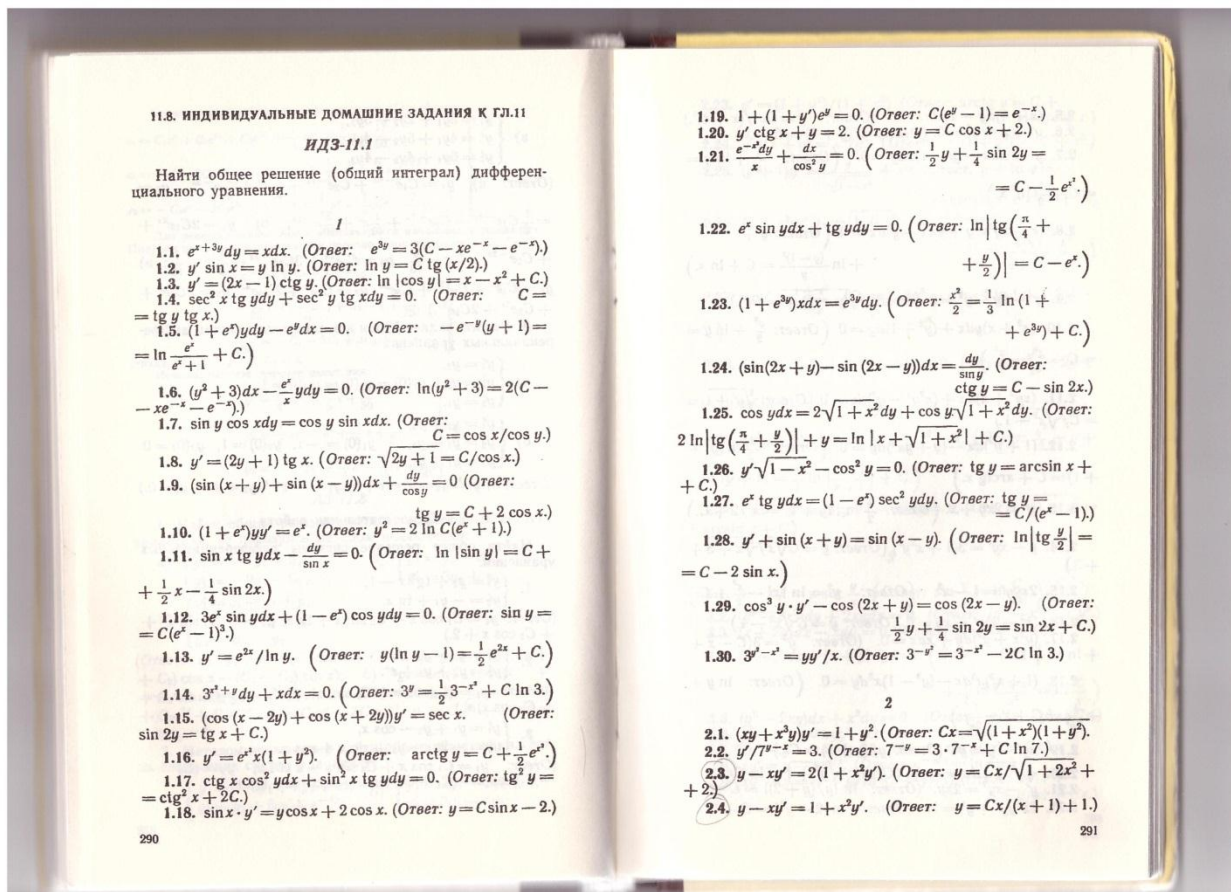 11.8. ИНДИВИДУАЛЬНЫЕ ДОМАШНИЕ ЗАДАНИЯ К ГЛ.11
ИДЗ-11.1
Найти общее решение (общий интеграл) дифферен-
циального уравнения.
1
1.1. e^{x+3y}dy = xdx. (Ответ: e^{3y} = 3(C − xe^{−x} − e^{−x}).)
1.2. y′ sin x = y ln y. (Ответ: ln y = C tg (x/2).)
1.3. y′ = (2x − 1) ctg y. (Ответ: ln |cos y| = x − x² + C.)
1.4. sec² x tg ydy + sec² y tg xdy = 0. (Ответ: C =
= tg y tg x.)
1.5. (1 + e^x)ydy − e^y dx = 0. (Ответ: −e^{−y}(y + 1) =
= ln e^x/(e^x + 1) + C.)
1.6. (y² + 3)dx − (e^x/x) ydy = 0. (Ответ: ln(y² + 3) = 2(C −
− xe^{−x} − e^{−x}).)
1.7. sin y cos xdy = cos y sin xdx. (Ответ:
C = cos x/cos y.)
1.8. y′ = (2y + 1) tg x. (Ответ: √(2y + 1) = C/cos x.)
1.9. (sin (x + y) + sin (x − y))dx + dy/cos y = 0 (Ответ:
tg y = C + 2 cos x.)
1.10. (1 + e^x)yy′ = e^x. (Ответ: y² = 2 ln C(e^x + 1).)
1.11. sin x tg ydx − dy/sin x = 0. (Ответ: ln |sin y| = C +
+ 1/2 x − 1/4 sin 2x.)
1.12. 3e^x sin ydx + (1 − e^x) cos ydy = 0. (Ответ: sin y =
= C(e^x − 1)³.)
1.13. y′ = e^{2x}/ln y. (Ответ: y(ln y − 1) = 1/2 e^{2x} + C.)
1.14. 3^{x²+y}dy + xdx = 0. (Ответ: 3^y = 1/2 3^{−x²} + C ln 3.)
1.15. (cos (x − 2y) + cos (x + 2y))y′ = sec x. (Ответ:
sin 2y = tg x + C.)
1.16. y′ = e^{x²}x(1 + y²). (Ответ: arctg y = C + 1/2 e^{x²}.)
1.17. ctg x cos² ydx + sin² x tg ydy = 0. (Ответ: tg² y =
= ctg² x + 2C.)
1.18. sin x · y′ = y cos x + 2 cos x. (Ответ: y = C sin x − 2.)
290
1.19. 1 + (1 + y′)e^y = 0. (Ответ: C(e^y − 1) = e^{−x}.)
1.20. y′ ctg x + y = 2. (Ответ: y = C cos x + 2.)
1.21. e^{−x²}dy/x + dx/cos² y = 0. (Ответ: 1/2 y + 1/4 sin 2y =
= C − 1/2 e^{x²}.)
1.22. e^x sin ydx + tg ydy = 0. (Ответ: ln|tg(π/4 +
+ y/2)| = C − e^x.)
1.23. (1 + e^{3y})xdx = e^{3y}dy. (Ответ: x²/2 = 1/3 ln (1 +
+ e^{3y}) + C.)
1.24. (sin(2x + y) − sin (2x − y))dx = dy/sin y. (Ответ:
ctg y = C − sin 2x.)
1.25. cos ydx = 2√(1 + x²) dy + cos y√(1 + x²) dy. (Ответ:
2 ln|tg(π/4 + y/2)| + y = ln |x + √(1 + x²)| + C.)
1.26. y′√(1 − x²) − cos² y = 0. (Ответ: tg y = arcsin x +
+ C.)
1.27. e^x tg ydx = (1 − e^x) sec² ydy. (Ответ: tg y =
= C/(e^x − 1).)
1.28. y′ + sin (x + y) = sin (x − y). (Ответ: ln|tg y/2| =
= C − 2 sin x.)
1.29. cos³ y · y′ − cos (2x + y) = cos (2x − y). (Ответ:
1/2 y + 1/4 sin 2y = sin 2x + C.)
1.30. 3^{y²−x²} = yy′/x. (Ответ: 3^{−y²} = 3^{−x²} − 2C ln 3.)
2
2.1. (xy + x³y)y′ = 1 + y². (Ответ: Cx = √((1 + x²)(1 + y²).)
2.2. y′/7^{y−x} = 3. (Ответ: 7^{−y} = 3 · 7^{−x} + C ln 7.)
2.3. y − xy′ = 2(1 + x²y′). (Ответ: y = Cx/√(1 + 2x²) +
+ 2.)
2.4. y − xy′ = 1 + x²y′. (Ответ: y = Cx/(x + 1) + 1.)
291